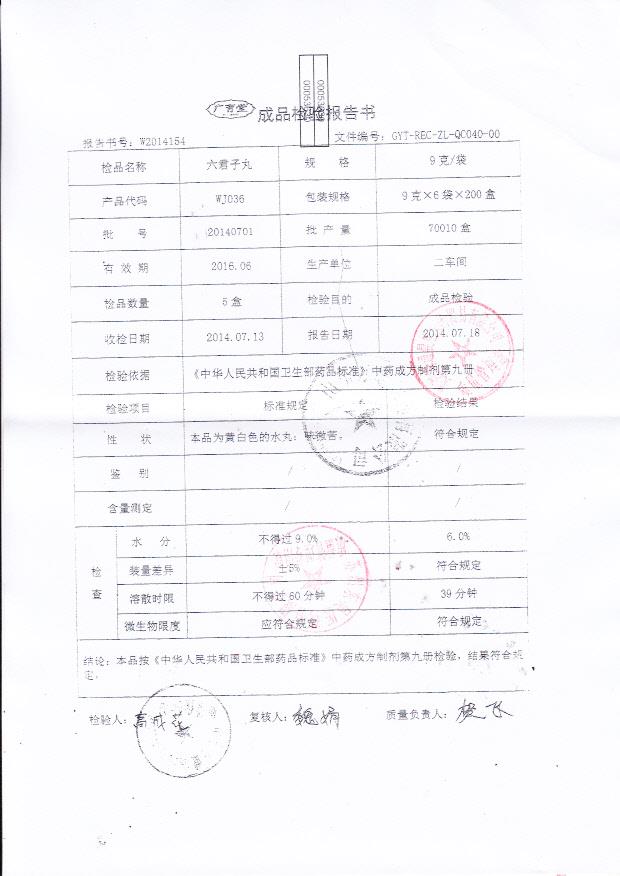 广育堂
成品检验报告书
报告书号：W2014154 文件编号：GYT-REC-ZL-QC040-00
检品名称 六君子丸 规 格 9克/袋
产品代码 WJ036 包装规格 9克×6袋×200盒
批 号 20140701 批 产 量 70010盒
有 效 期 2016.06 生产单位 二车间
检品数量 5盒 检验目的 成品检验
收检日期 2014.07.13 报告日期 2014.07.18
检验依据 《中华人民共和国卫生部药品标准》中药成方制剂第九册
检验项目 标准规定 检验结果
性 状 本品为黄白色的水丸；味微苦。 符合规定
鉴 别 / /
含量测定 / /
检查 水 分 不得过9.0% 6.0%
装量差异 ±5% 符合规定
溶散时限 不得过60分钟 39分钟
微生物限度 应符合规定 符合规定
结论：本品按《中华人民共和国卫生部药品标准》中药成方制剂第九册检验，结果符合规
定。
检验人： 复核人：魏娟 质量负责人：